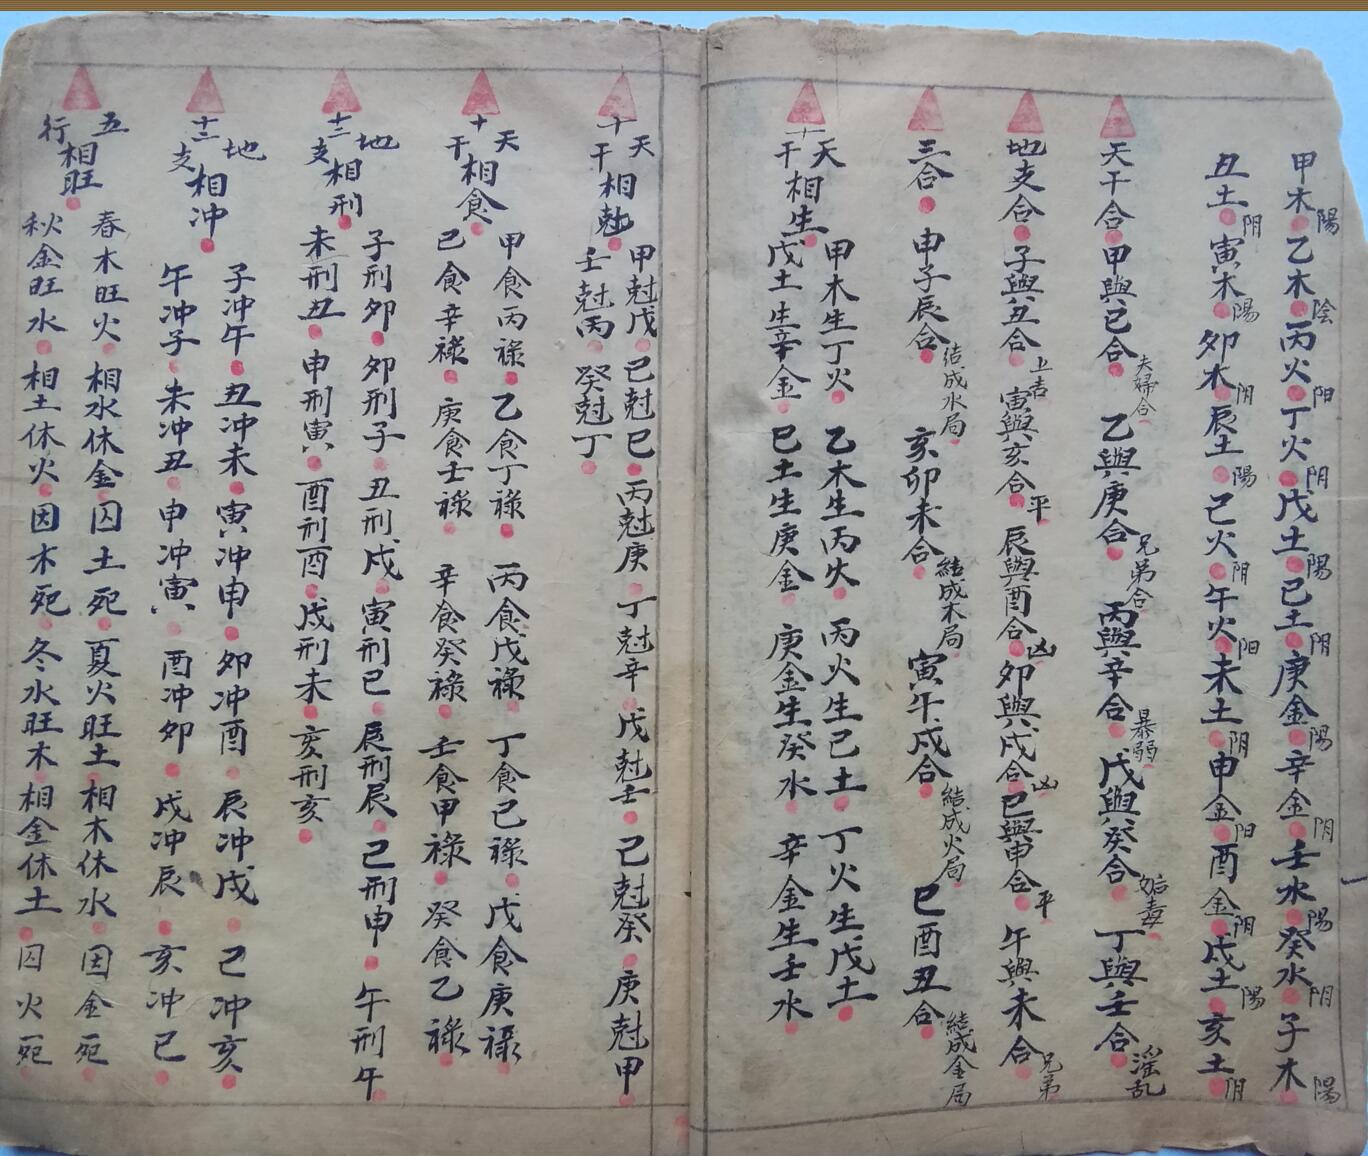 甲木陽 乙木陰 丙火阳 丁火阴 戊土陽 己土阴 庚金陽 辛金阴 壬水陽 癸水阴 子木陽
丑土阴 寅木陽 卯木阴 辰土陽 己火阴 午火阳 未土阴 申金阳 酉金阴 戌土陽 亥土阴
天干合 甲與已合 夫婦合 乙與庚合 兄弟合 丙與辛合 暴弱 戊與癸合 妬毒 丁與壬合 淫乱
地支合 子與丑合 上吉 寅與亥合 平 辰與酉合 凶 卯與戌合 凶 巳與申合 平 午與未合 兄弟
三合 申子辰合 结成水局 亥卯未合 結成木局 寅午戌合 結成火局 巳酉丑合 結成金局
天十干相生
甲木生丁火 乙木生丙火 丙火生己土 丁火生戊土
戊土生辛金 巳土生庚金 庚金生癸水 辛金生壬水
天十干相尅
甲尅戊 己尅巳 丙尅庚 丁尅辛 戊尅壬 己尅癸 庚尅甲
壬尅丙 癸尅丁
天十干相食
甲食丙禄 乙食丁禄 丙食戊禄 丁食己禄 戊食庚禄
己食辛禄 庚食壬禄 辛食癸禄 壬食甲禄 癸食乙禄
地十二支相刑
子刑卯 卯刑子 丑刑戌 寅刑巳 辰刑辰 己刑申 午刑午
未刑丑 申刑寅 酉刑酉 戌刑未 亥刑亥
地十二支相冲
子冲午 丑冲未 寅冲申 卯冲酉 辰冲戌 己冲亥
午冲子 未冲丑 申冲寅 酉冲卯 戌冲辰 亥冲巳
五行相旺
春木旺火 相水休金 囚土死 夏火旺土 相木休水 因金死
秋金旺水 相土休火 因木死 冬水旺木 相金休土 囚火死